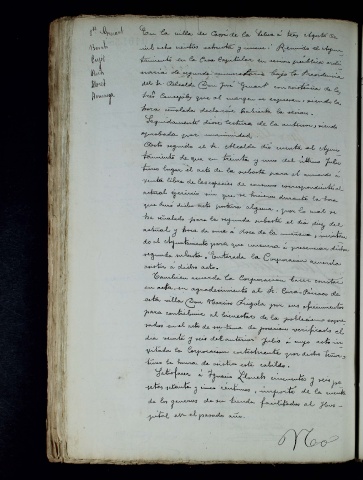 Sr. Amat
Bosch
Puig
Rich
Morell
En la villa de Cassá de la Selva á tres Agosto de
mil ocho cientos noventa y nueve: Reunido el Ayun-
tamiento en la Casa Capitular en sesion pública ordi-
naria de segunda convocatoria bajo la Presidencia
del Sr. Alcalde Don José con asistencia de los
Sres Concejales que al margen se espresan, siendo la
hora señalada declaróse abierta la sesion.
Seguidamente dióse lectura de la anterior, siendo
aprobada por unanimidad.
Acto seguido el Sr. Alcalde dió cuenta al Ayun-
tamiento de que en treinta y uno del último Julio
tuvo lugar el acto de la subasta para el arriendo á
venta libre de las especies de consumo correspondiente al
actual ejercicio sin que se hiciera durante la hora
que duró dicho acto postura alguna, por lo cual se
ha señalado para la segunda subasta el dia diez del
actual y hora de once á doce de la mañana, invitan-
do al Ayuntamiento para que concurra á presenciar dicha
segunda subasta. Enterada la Corporacion acuerda
asistir á dicho acto.
Tambien acuerda la Corporacion hacer constar
en acta su agradecimiento al Sr. Cura-Párroco de
esta villa Don Narciso Frigola por sus ofrecimientos
para contribuir al bienestar de la poblacion espre-
sados en el acto de su toma de posesion verificado el
dia veinte y seis del anterior Julio á cuyo acto in-
vitada la Corporacion
tuvo la honra de asistir este cabildo.
Satisfacer á Ignacio Llinás cincuenta y seis pe-
setas setenta y cinco céntimos, importe de la cuenta
de los generos de su tienda facilitados al Hos-
pital en el pasado año.